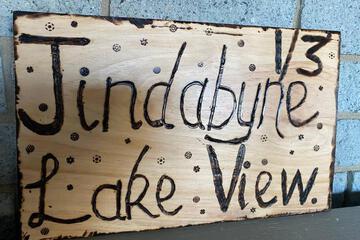 1/3
Jindabyne
Lake View.